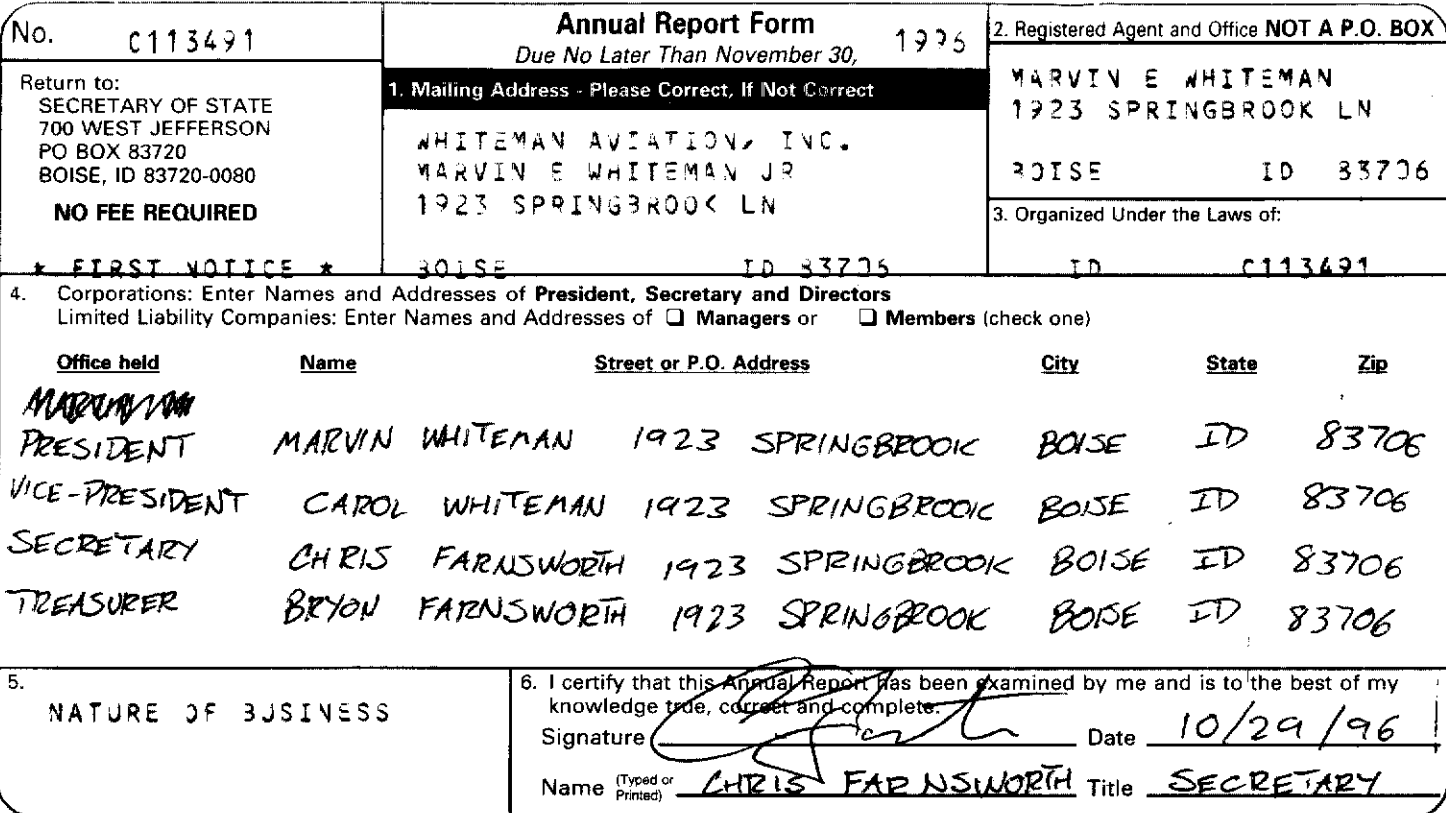 No. C113491
Return to:
SECRETARY OF STATE
700 WEST JEFFERSON
PO BOX 83720
BOISE, ID 83720-0080
NO FEE REQUIRED
* FIRST NOTICE *
Annual Report Form 1996
Due No Later Than November 30,
1. Mailing Address - Please Correct, If Not Correct
WHITEMAN AVIATION, INC.
MARVIN E WHITEMAN JR
1923 SPRINGBROOK LN
BOISE ID 83706
2. Registered Agent and Office NOT A P.O. BOX
MARVIN E WHITEMAN
1923 SPRINGBROOK LN
BOISE ID 83706
3. Organized Under the Laws of:
ID C113491
4. Corporations: Enter Names and Addresses of President, Secretary and Directors
Limited Liability Companies: Enter Names and Addresses of ❑ Managers or ❑ Members (check one)
Office held Name Street or P.O. Address City State Zip
PRESIDENT MARVIN WHITEMAN 1923 SPRINGBROOK BOISE ID 83706
VICE-PRESIDENT CAROL WHITEMAN 1923 SPRINGBROOK BOISE ID 83706
SECRETARY CHRIS FARNSWORTH 1923 SPRINGBROOK BOISE ID 83706
TREASURER BRYON FARNSWORTH 1923 SPRINGBROOK BOISE ID 83706
5.
NATURE OF BUSINESS
6. I certify that this Annual Report has been examined by me and is to the best of my
knowledge true, correct and complete.
Signature Date 10/29/96
Name (Typed or Printed) CHRIS FARNSWORTH Title SECRETARY